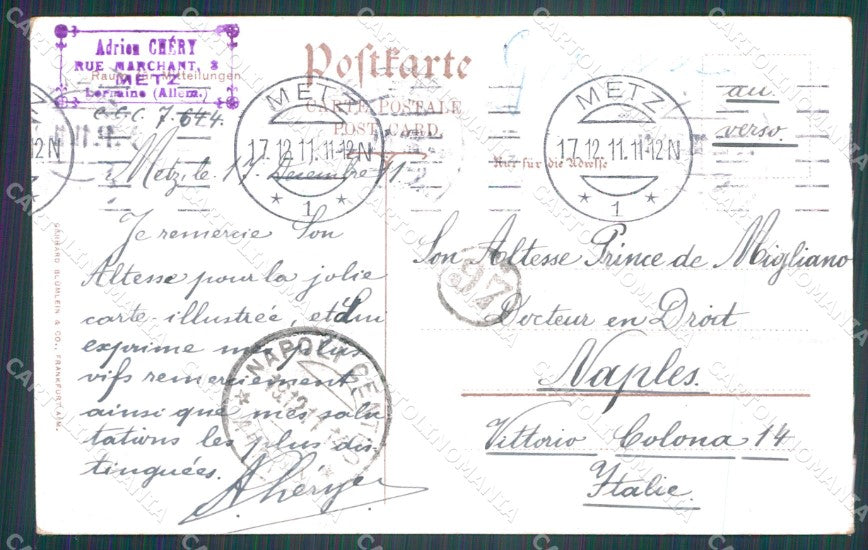 Adrien CHÉRY
RUE MARCHANT, 3
METZ
Lorraine (Allem.)
Raum für Mitteilungen
C.C.C. 7.644.
Postkarte
CARTE POSTALE
POST CARD.
METZ
17.12.11.11-12N
* 1 *
METZ
17.12.11.11-12N
* 1 *
12N
au
verso.
Nur für die Adresse
Metz, le 17 Décembre 11.
Je remercie Son
Altesse pour la jolie
carte illustrée, et Lui
exprime mes plus
vifs remerciements
ainsi que mes salu
tations les plus dis
tinguées.
AChéry
Son Altesse Prince de Migliano
Docteur en Droit
Naples.
Vittorio Colona 14
Italie.
97
NAPOLI CENTRO
KNACKSTEDT
BLÜMLEIN & CO., FRANKFURT A/M.
CARTOLINOMANIA